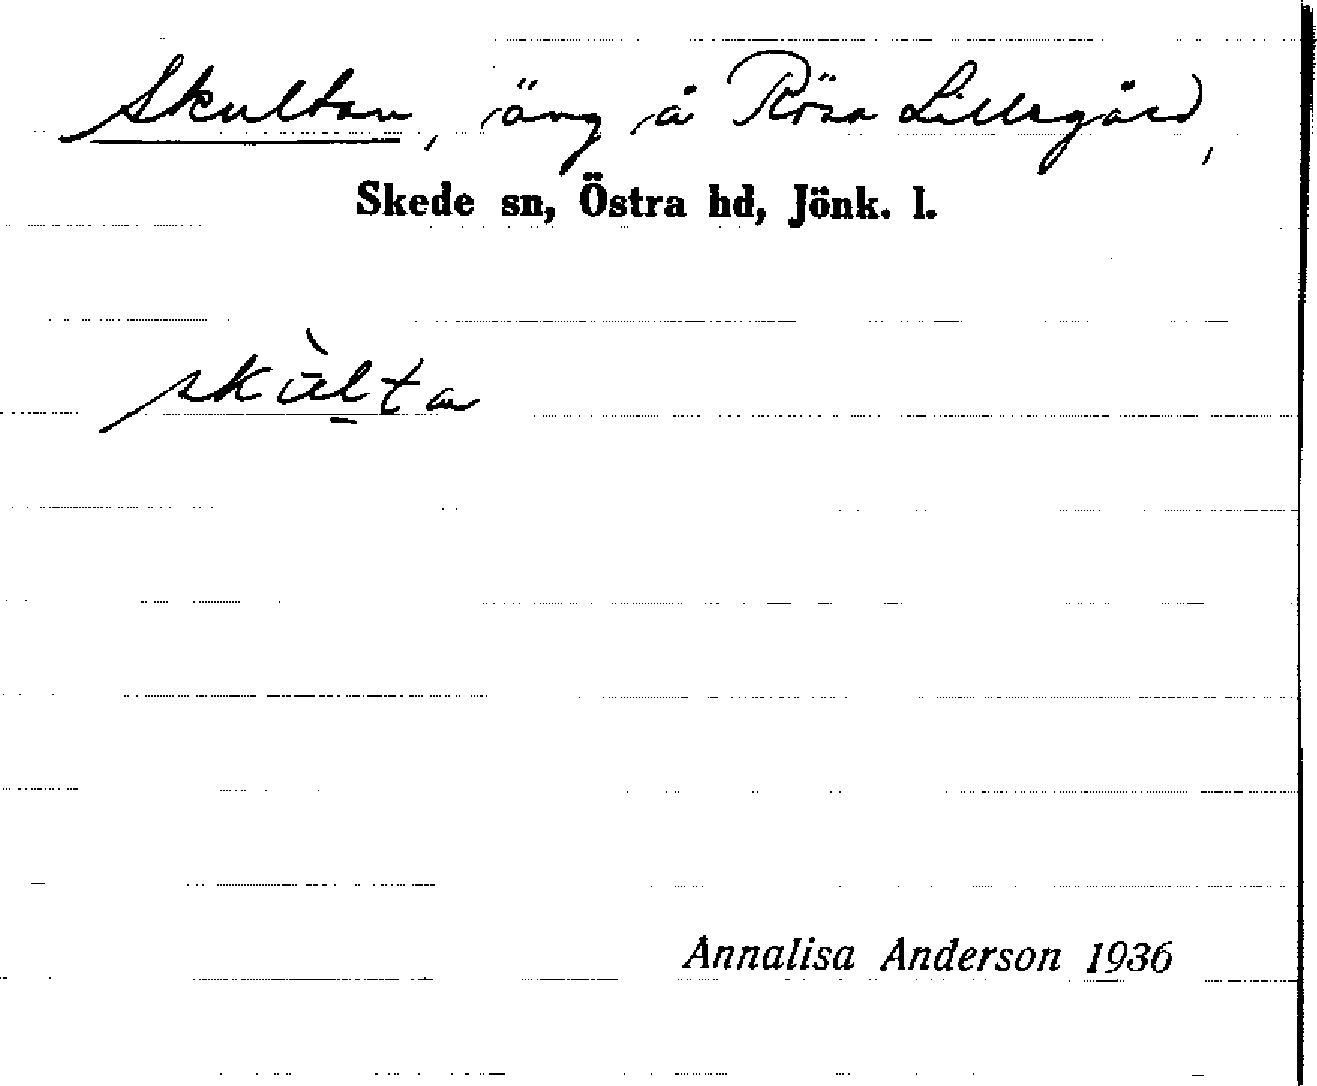 Skultan, äng å Rösa Lillegård,
Skede sn, Östra hd, Jönk. l.
skùlta
Annalisa Anderson 1936